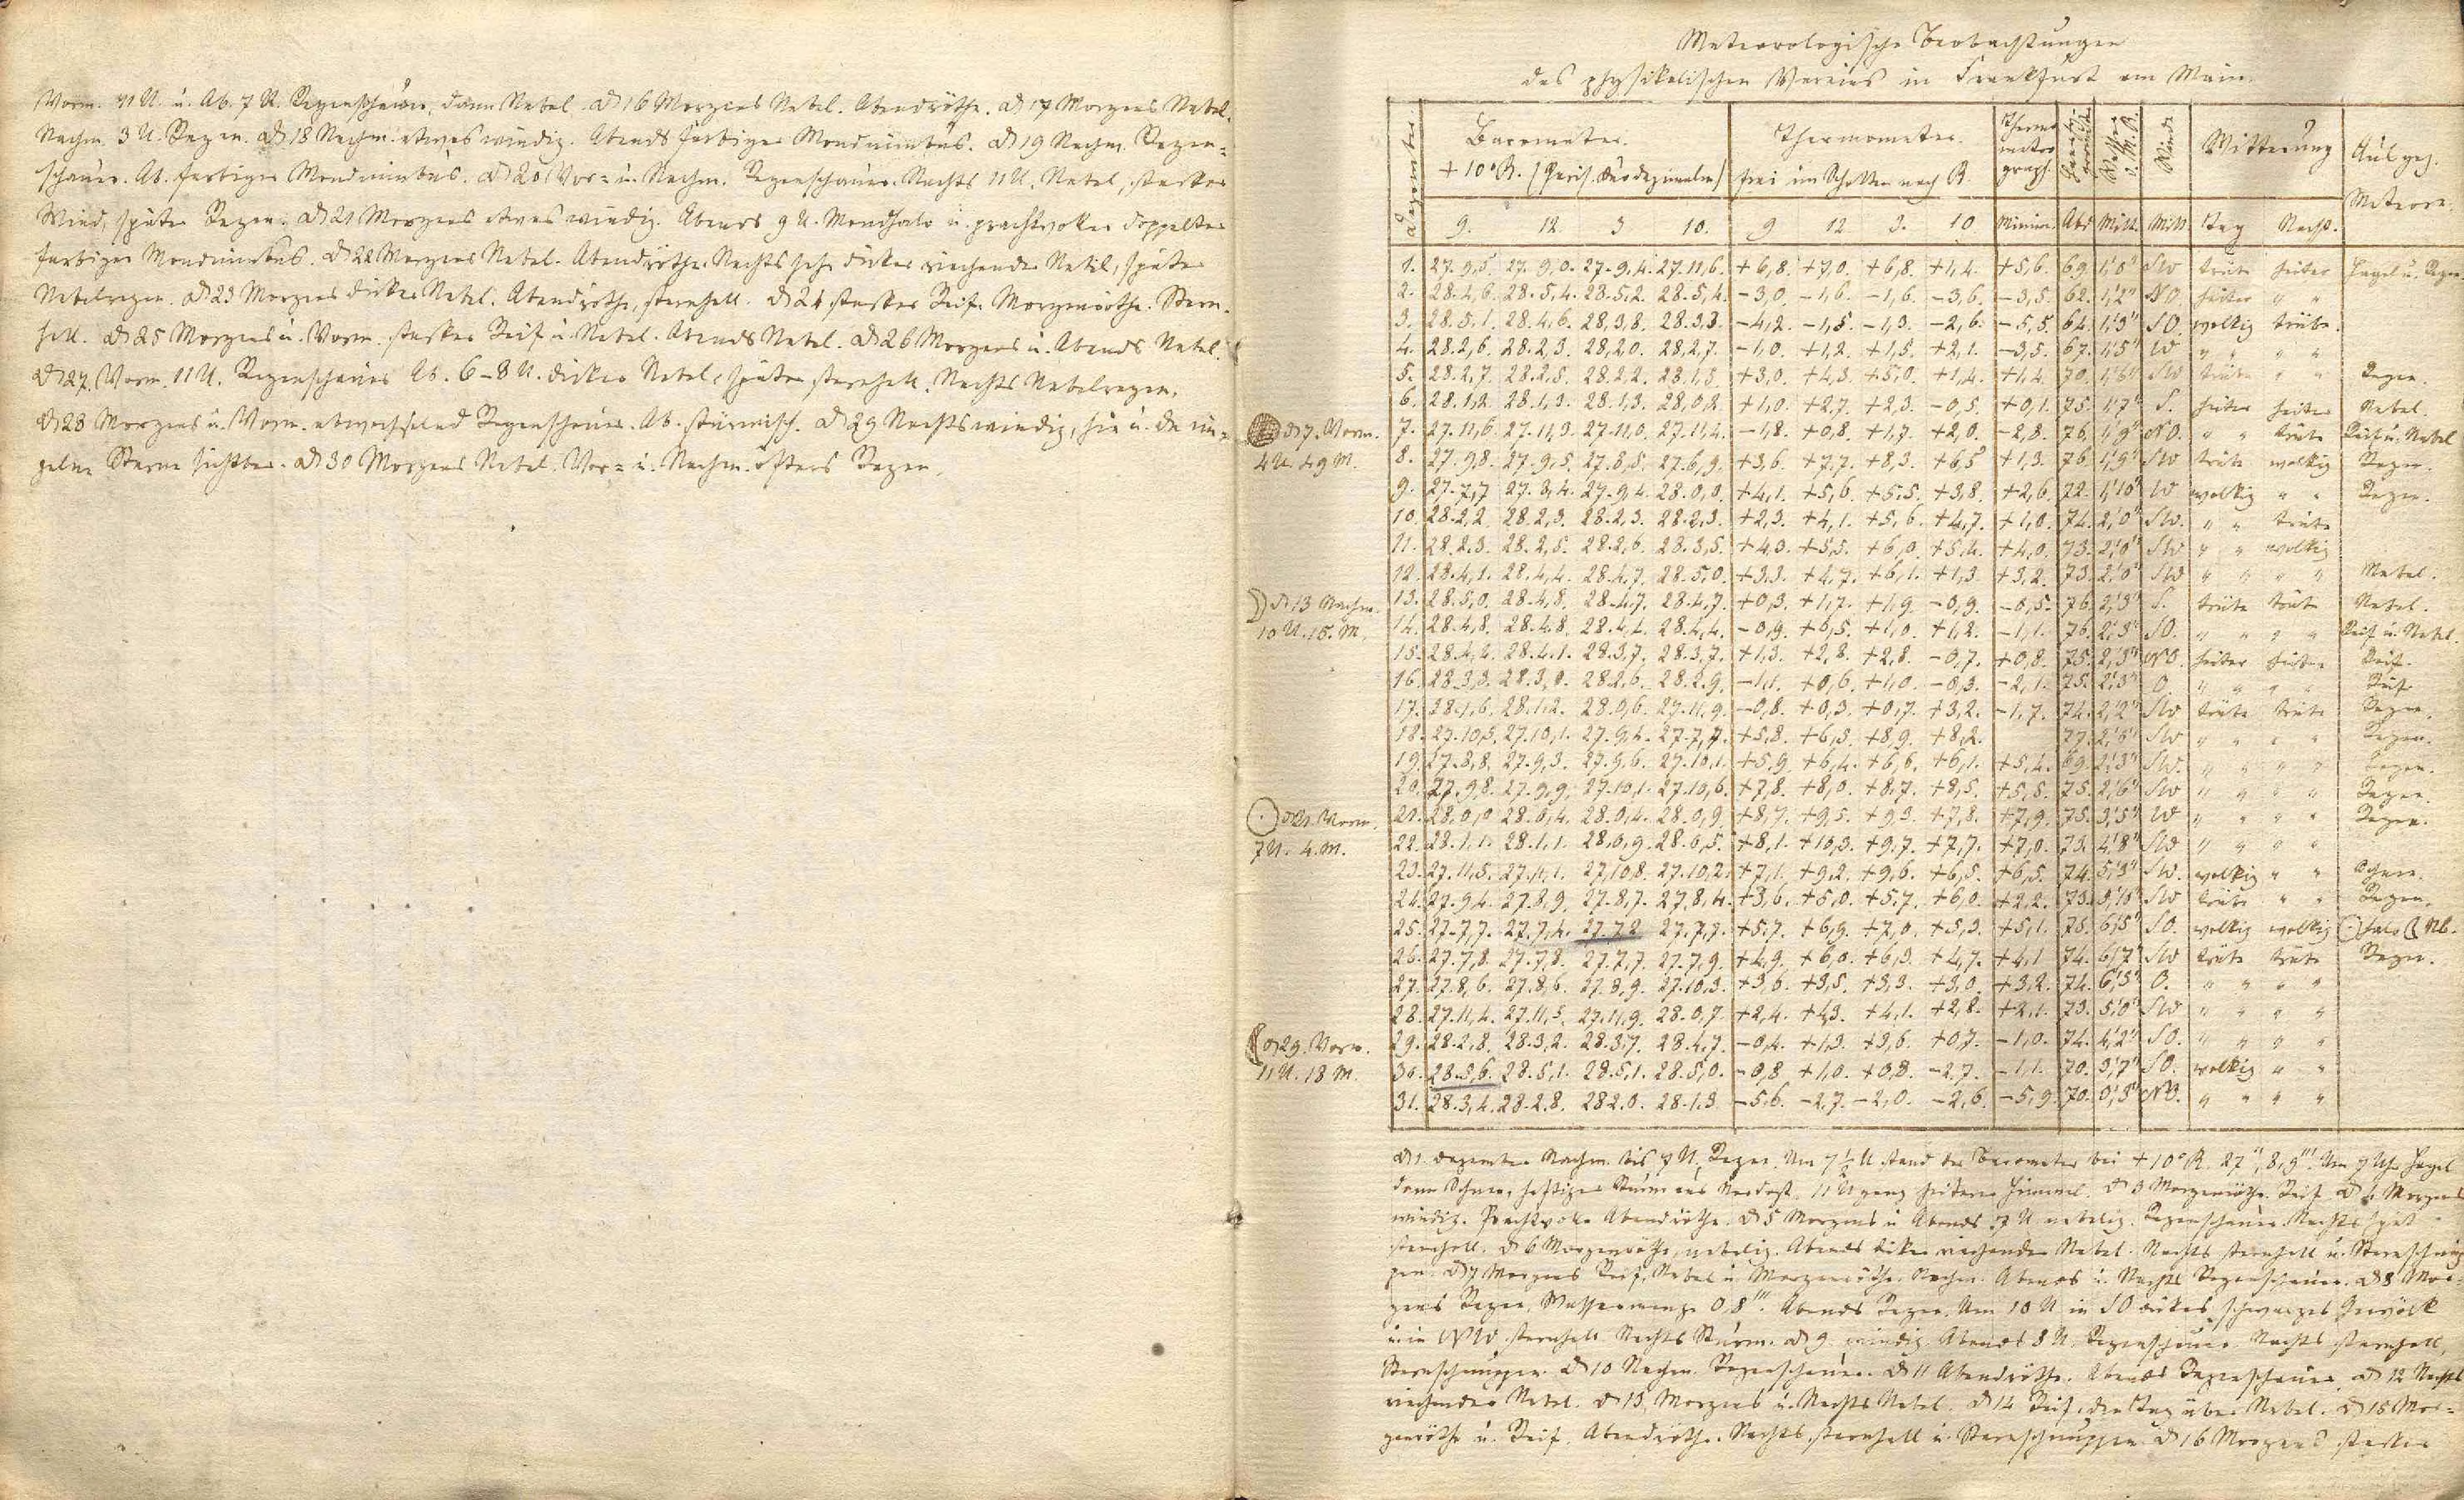 Vorm. 11 U. u. Ab. 7 U. Regenschauer, dann Nebel. D 16 Morgens Nebel. Abendröthe. D 17 Morgens Nebel.
Nachm. 3 U. Regen. D 18 Nachm. etwas windig. Abends farbiger Mondnimbus. D 19 Nachm. Regen=
schauer. Ab. farbiger Mondnimbus. D 20 Vor= u. Nachm. Regenschauer. Nachts 11 U. Nebel, starker
Wind, später Regen. D 21 Morgens etwas windig. Abends 9 U. Mondhalo u. prachtvoller doppelter
farbiger Mondnimbus. D 22 Morgens Nebel. Abendröthe. Nachts sehr dicker riechender Nebel, später
Nebelregen. D 23 Morgens dicker Nebel. Abendröthe, sternhell. D 24 starker Reif. Morgenröthe. Stern=
hell. D 25 Morgens u. Vorm. starker Reif u. Nebel. Abends Nebel. D 26 Morgens u. Abends Nebel.
D 27. Vorm. 11 U. Regenschauer Ab. 6–8 U. dicker Nebel, später sternhell. Nachts Nebelregen.
D 28 Morgens u. Vorm. abwechselnd Regenschauer. Ab. stürmisch. D 29 Nachts windig, hie u. da ein=
zelne Sterne sichtbar. D 30 Morgens Nebel. Vor= u. Nachm. öfters Regen.
Meteorologische Beobachtungen
des physikalischen Vereins in Frankfurt am Main.
Dezember Barometer. Thermometer. Thermometrograph. Winde Witterung Ausgez. Meteore.
+ 10° R. (Paris. Duodezimalm) frei im Schatten nach R.
9. 12 3 10. 9 12 3. 10 Minim. Abd Mitt. Mitt Tag Nacht.
1. 27.9,5. 27.9,0. 27.9,4. 27.11,6. +6,8. +7,0. +6,8. +1,4. +5,6. 69. 1,'0" SW trübe heiter Hagel u. Regen
2. 28.4,6. 28.5,4. 28.5,2. 28.5,4. -3,0. -1,6. -1,6. -3,6. -3,5. 62. 1,'2" NO. heiter " "
3. 28.5,1. 28.4,6. 28.3,8. 28.3,3. -4,2. -1,5. -1,3. -2,6. -5,5. 64. 1,'3" SO. wolkig trübe.
4. 28.2,6. 28.2,3. 28.2,0. 28.2,7. -1,0. +1,2. +1,5. +2,1. -3,5. 67. 1,'5" W " " " "
5. 28.2,7. 28.2,5. 28.2,2. 28.1,5. +3,0. +4,3. +5,0. +1,4. +1,4. 70. 1,'6" SW trübe " " Regen.
6. 28.1,2. 28.1,3. 28.1,3. 28.0,2. +1,0. +2,7. +2,3. -0,5. +0,1. 75. 1,'7" S. heiter heiter Nebel.
D 7. Vorm.
4 U. 49 M.
7. 27.11,6. 27.11,3. 27.11,0. 27.11,4. -1,8. +0,8. +1,7. +2,0. -2,8. 76. 1,'9" NO. " " trübe Reif u. Nebel
8. 27.9,8. 27.9,5. 27.8,5. 27.6,9. +3,6. +7,7. +8,3. +6,5 +1,3. 76. 1,'9" SW trübe wolkig Regen.
9. 27.7,7 27.8,4. 27.9,4. 28.0,0. +4,1. +5,6. +5,5. +3,8. +2,6. 72. 1,'10" W wolkig " " Regen.
10. 28.2,2. 28.2,3. 28.2,3. 28.2,3. +2,3. +4,1. +5,6. +4,7. +1,0. 74. 2,'0" SW. " " trübe
11. 28.2,3. 28.2,5. 28.2,6. 28.3,5. +4,3. +5,5. +6,0. +5,4. +4,0. 73. 2,'0" SW " " wolkig
12. 28.4,1. 28.4,4. 28.4,7. 28.5,0. +3,3. +4,7. +6,1. +1,3 +3,2. 73. 2,'0" SW " " " " Nebel.
D 13 Nachm.
10 U. 15. M.
13. 28.5,0. 28.4,8. 28.4,7. 28.4,7. +0,3. +1,7. +1,9. -0,9. -0,5. 76. 2,'3" S. trübe trübe Nebel.
14. 28.4,8. 28.4,8. 28.4,4. 28.4,4. -0,9. +0,5. +1,0. +1,2. -1,1. 76. 2,'3" SO. " " " " Reif u. Nebel.
15. 28.4,2. 28.4,1. 28.3,7. 28.3,7. +1,3. +2,8. +2,8. -0,7. +0,8. 75. 2,'3" NO. heiter heiter Reif.
16. 28.3,3. 28.3,0. 28.2,6. 28.2,9. -1,1. +0,6. +1,0. -0,3. -2,1. 75. 2,'3" O. " " " " Reif
17. 28.1,6. 28.1,2. 28.0,6. 27.11,9. -0,8. +0,3. +0,7. +3,2. -1,7. 74. 2,'2" SW trübe trübe Regen.
18. 27.10,5. 27.10,1. 27.9,4. 27.7,7. +5,8. +6,3. +8,9. +8,2. 77. SW " " " " Regen.
19. 27.8,8. 27.9,3. 27.9,6. 27.10,1. +5,9 +6,4. +6,6. +6,1. +5,4. 69. 2,'3" SW. " " " " Regen.
20. 27.9,8. 27.9,9. 27.10,1. 27.10,6. +7,8. +8,0. +8,7. +8,5. +5,5. 75. 2,'6" SW " " " " Regen.
D 21. Vorm.
7 U. 4. M.
21. 28.0,0 28.0,4. 28.0,4. 28.0,9. +8,7. +9,5. +9,3. +7,8. +7,9. 75. 3,'5" W " " " " Regen.
22. 28.1,1. 28.1,1. 28.0,9. 28.0,5. +8,1. +10,3. +9,7. +7,7. +7,0. 73. 4,'8" SW " " " "
23. 27.11,5. 27.11,1. 27.10,8. 27.10,2. +7,1. +9,2. +9,6. +6,5. +6,5. 74. 5,'3" SW. wolkig " " Schnee.
24. 27.9,4. 27.8,9. 27.8,7. 27.8,4. +3,6. +5,0. +5,7. +6,0. +2,2. 73. SW trübe " " Regen.
25. 27.7,7. 27.7,4. 27.7,2 27.7,7. +5,7. +6,9. +7,0. +5,3. +5,1. 75. 6,'5" SO. wolkig wolkig halo Nb.
26. 27.7,8. 27.7,8. 27.7,7. 27.7,9. +4,9. +6,0. +6,3. +4,7. +4,1 74. 6,'7" SW trübe trübe Regen.
27. 27.8,6. 27.8,6. 27.8,9. 27.10,3. +3,6. +3,5. +3,3. +3,0. +3,2. 74. 6,'3" O. " " " "
28. 27.11,4. 27.11,5. 27.11,9. 28.0,7. +2,4. +4,3. +4,1. +2,8. +2,1. 73. 5,'0" SW " " " "
D 29. Vorm.
11 U. 18 M.
29. 28.2,8. 28.3,2. 28.3,7. 28.4,7. -0,4. +1,3. +3,6. +0,7. -1,0. 74. 4,'2" SO. " " " "
30. 28.5,6. 28.5,1. 28.5,1. 28.5,0. -0,8 +1,0. +0,8. -2,7. -1,1. 70. 3,'7" SO. wolkig " "
31. 28.3,4. 28.2,8. 28.2,0. 28.1,3 -5,6. -2,7. -2,0. -2,6. -5,9. 70. 0,'8" NO. " " " "
D 1. Dezember Nachm. bis 7 U. Regen. Um 7½ U. stand der Barometer bei +10° R. 27", 8,9'''. Um 7 Uhr Hagel
dann Schnee, heftiger Sturm aus Nordost. 11 U ganz heiterer Himmel. D 3 Morgenröthe. Reif D 4 Morgens
windig. Prachtvolle Abendröthe. D 5 Morgens u Abends 7 U nebelig. Regenschauer. Nachts spät
sternhell. D 6 Morgenröthe, nebelig. Abends dicker riechender Nebel. Nachts sternhell u. Sternschnup
pen. D 7 Morgens Reif, Nebel u. Morgenröthe. Nachm. Abends u. Nachts Regenschauer. D 8 Mor=
gens Regen, Wassermenge 0,8'''. Abends Regen. Um 10 U in SO dickes schwarzes Gewölk
u. in NW sternhell Nachts Sturm. D 9. windig. Abends 8 U. Regenschauer. Nachts sternhell,
Sternschnuppen. D 10 Nachm. Regenschauer. D 11 Abendröthe. Abends Regenschauer. D 12 Nachts
riechender Nebel. D 13, Morgens u. Nachts Nebel. D 14 Reif, den Tag über Nebel. D 15 Mor=
genröthe u. Reif. Abendröthe. Nachts sternhell u. Sternschnuppen. D 16 Morgens starker